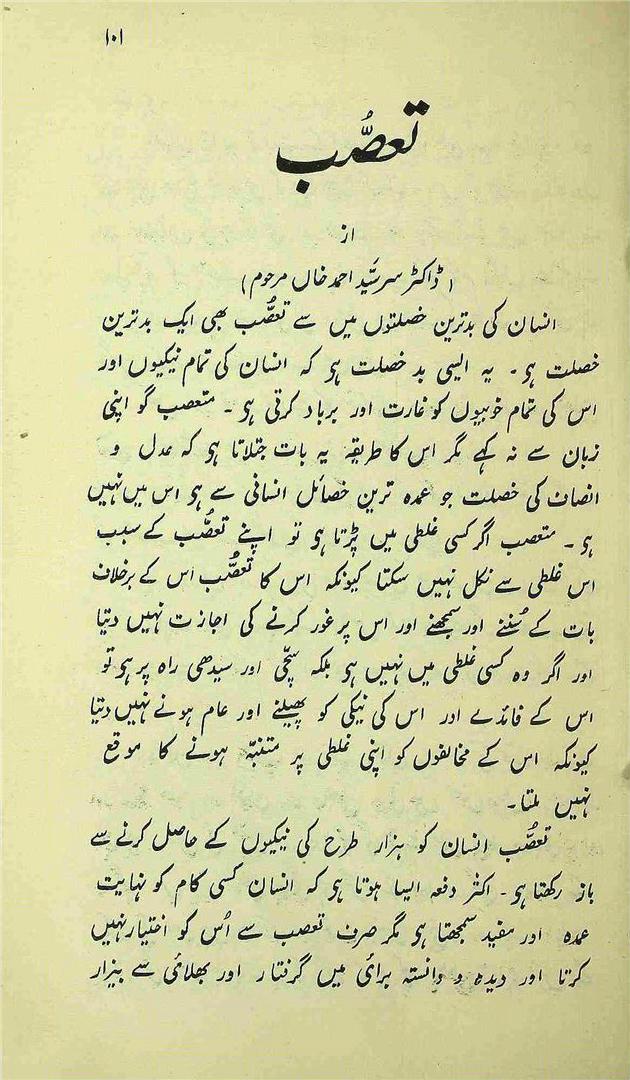 ۱۰۱
تعصُّب
از
(ڈاکٹر سر سیّد احمد خاں مرحوم)
انسان کی بدترین خصلتوں میں سے تعصُّب بھی ایک بدترین
خصلت ہو۔ یہ ایسی بد خصلت ہو کہ انسان کی تمام نیکیوں اور
اس کی تمام خوبیوں کو غارت اور برباد کرتی ہو۔ متعصب گو اپنی
زبان سے نہ کہے مگر اس کا طریقہ یہ بات جتلاتا ہو کہ عدل و
انصاف کی خصلت جو عمدہ ترین خصائل انسانی سے ہو اس میں نہیں
ہو۔ متعصب اگر کسی غلطی میں پڑتا ہو تو اپنے تعصُّب کے سبب
اس غلطی سے نکل نہیں سکتا کیونکہ اس کا تعصُّب اُس کے برخلاف
بات کے سُننے اور سمجھنے اور اس پر غور کرنے کی اجازت نہیں دیتا
اور اگر وہ کسی غلطی میں نہیں ہو بلکہ سچّی اور سیدھی راہ پر ہو تو
اس کے فائدے اور اس کی نیکی کو پھیلنے اور عام ہونے نہیں دیتا
کیونکہ اس کے مخالفوں کو اپنی غلطی پر متنبّہ ہونے کا موقع
نہیں ملتا۔
تعصُّب انسان کو ہزار طرح کی نیکیوں کے حاصل کرنے سے
باز رکھتا ہو۔ اکثر دفعہ ایسا ہوتا ہو کہ انسان کسی کام کو نہایت
عمدہ اور مفید سمجھتا ہو مگر صرف تعصب سے اُس کو اختیار نہیں
کرتا اور دیدہ و دانستہ برائی میں گرفتار اور بھلائی سے بیزار